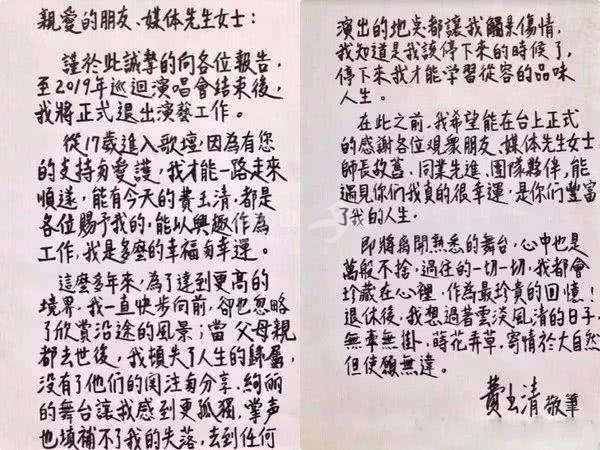 親愛的朋友、媒体先生女士：
謹於此誠摯的向各位報告，
至2019年巡迴演唱會結束後，
我將正式退出演藝工作。
從17歲進入歌壇，因為有您
的支持与愛護，我才能一路走來
順遂，能有今天的費玉清，都是
各位賜予我的，能以興趣作為
工作，我是多麼的幸福与幸運。
這麼多年來，為了達到更高的
境界，我一直快步向前，卻也忽略
了欣賞沿途的風景；當父母親
都去世後，我頓失了人生的歸屬，
沒有了他們的関注与分享，絢丽
的舞台讓我感到更孤獨，掌声
也填補不了我的失落，去到任何
演出的地点都讓我觸景傷情，
我知道是我該停下來的時候了，
停下來我才能學習從容的品味
人生。
在此之前，我希望能在台上正式
的感謝各位觀衆朋友、媒体先生女士、
師長故舊、同業先進、團隊夥伴，能
遇見你們我真的很幸運，是你們豐富
了我的人生。
即將離開熟悉的舞台，心中也是
萬般不捨，過往的一切一切，我都會
珍藏在心裡，作為最珍貴的回憶！
退休後，我想過著雲淡風清的日子，
無牽無掛，蒔花弄草，寄情於大自然
但使願無違。
費玉清 敬筆